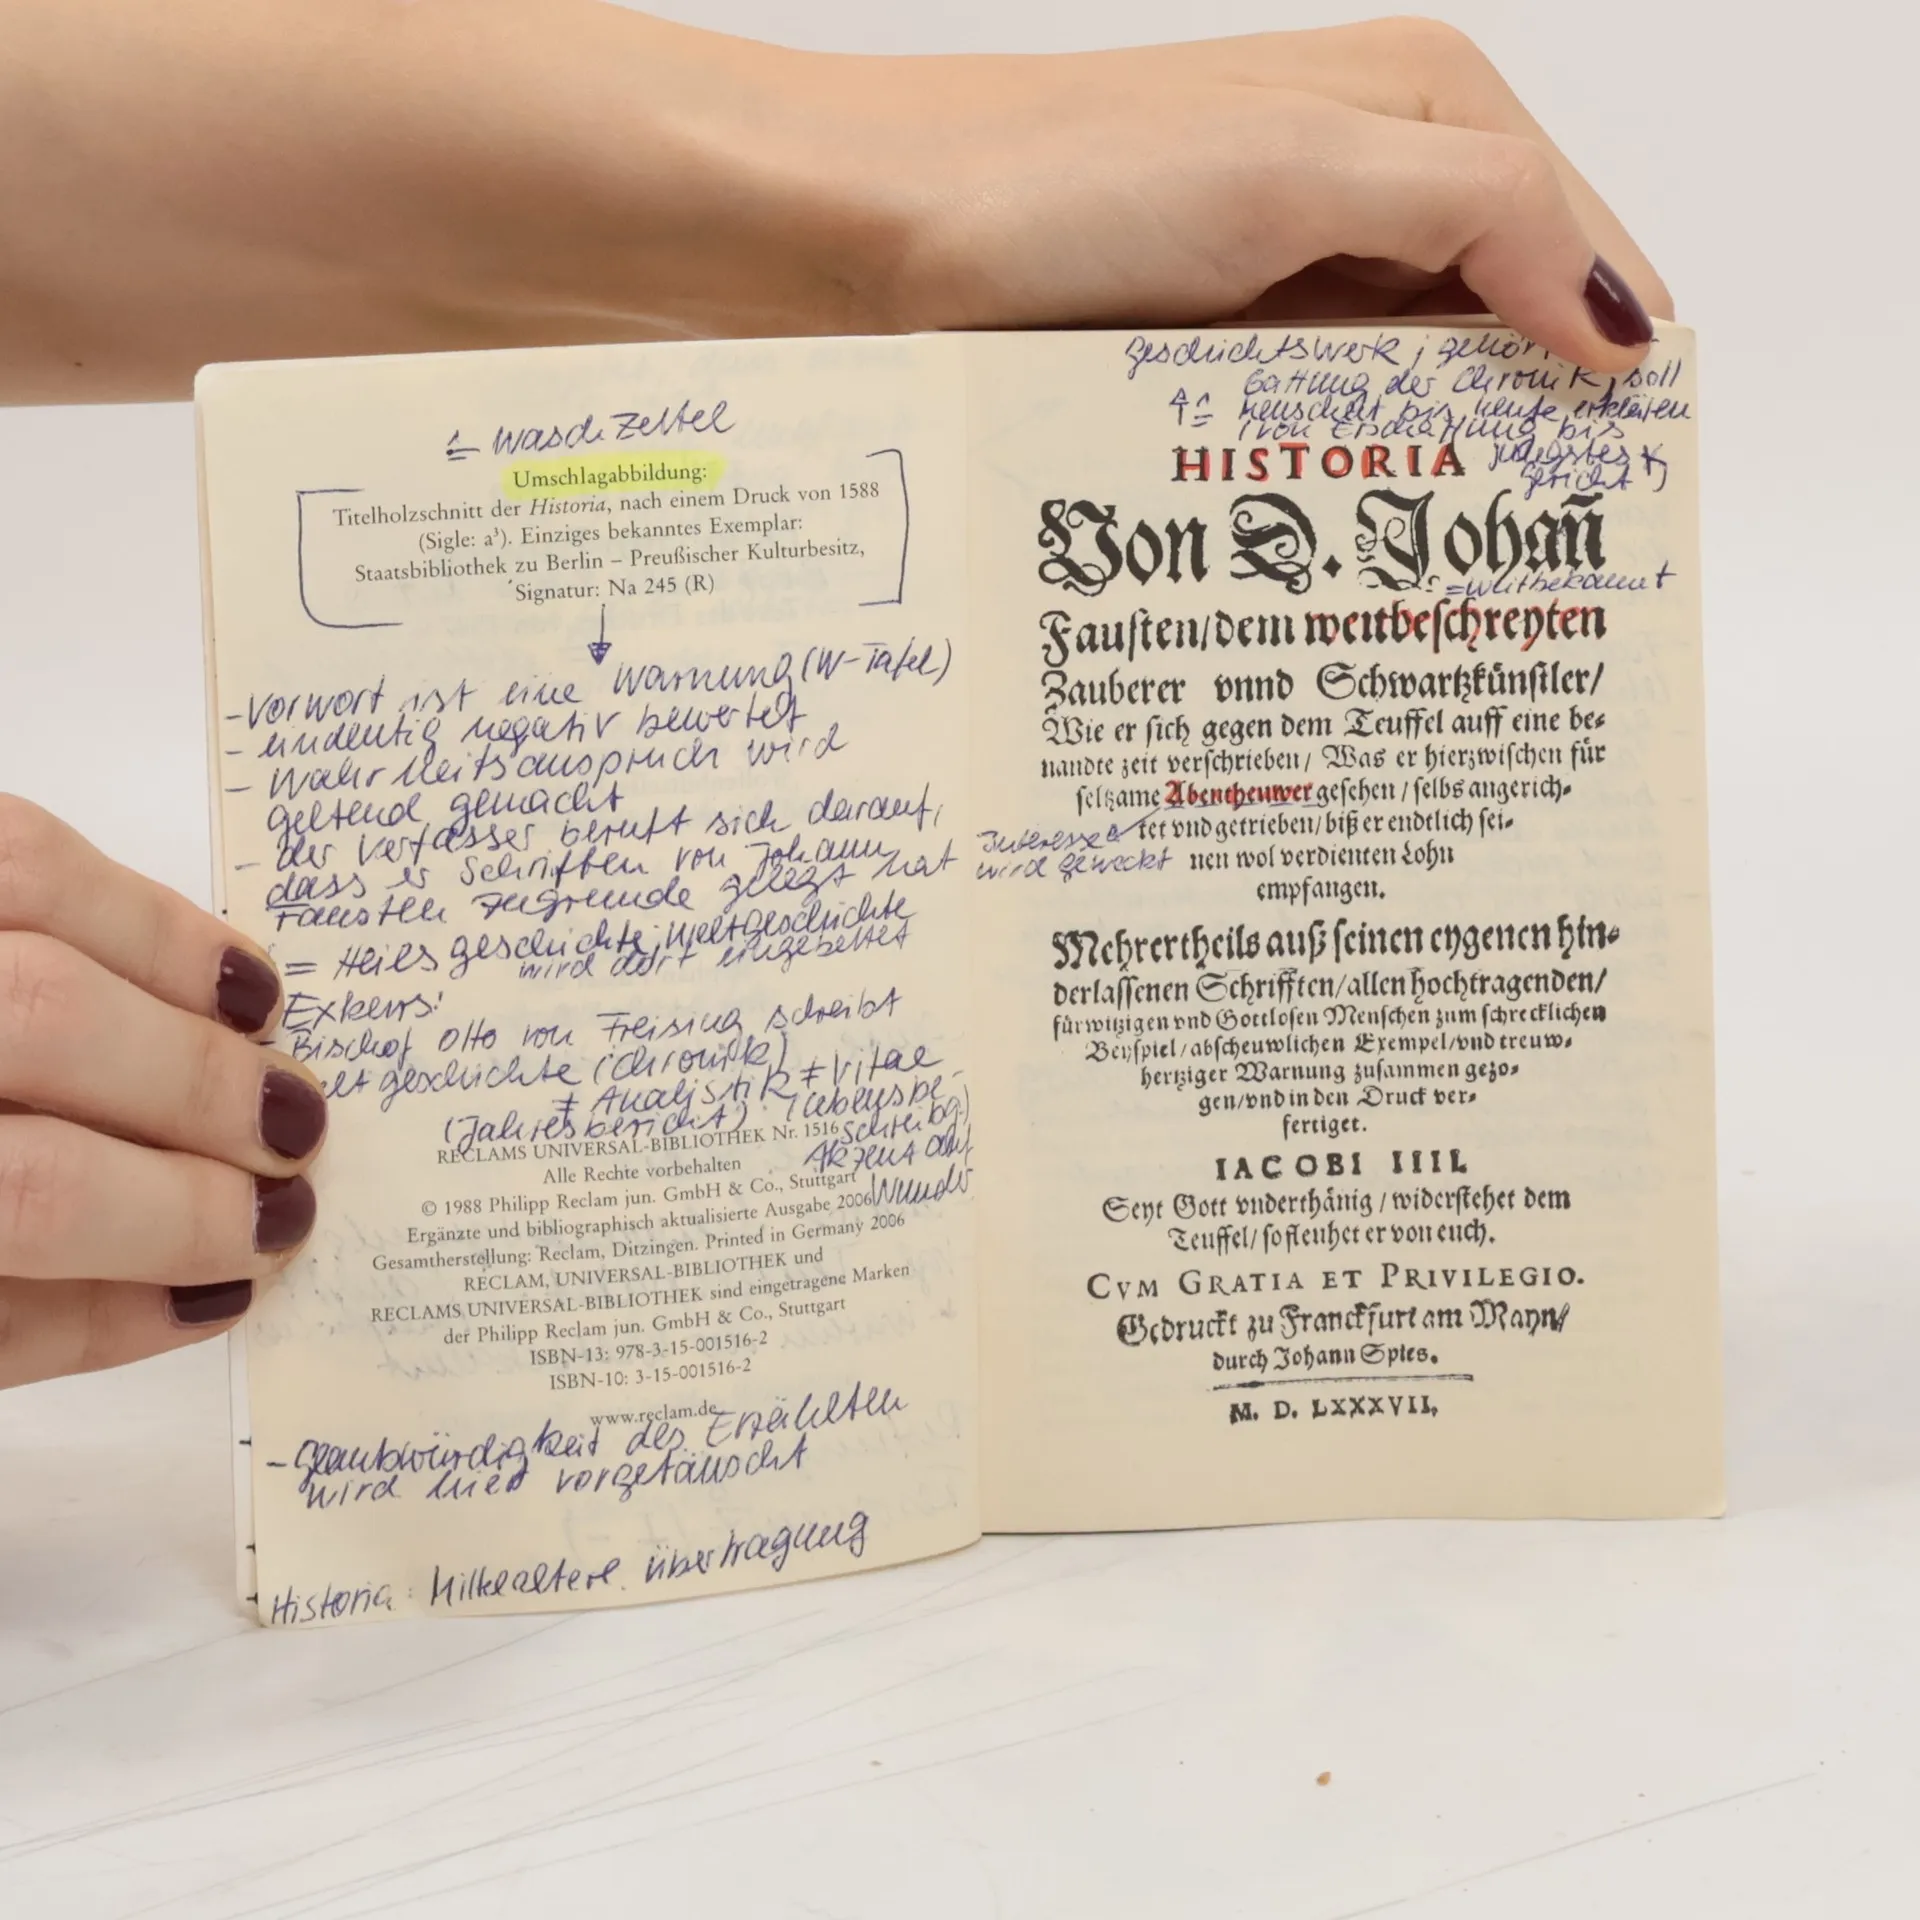 ≙ Waschzettel
Umschlagabbildung:
Titelholzschnitt der Historia, nach einem Druck von 1588
(Sigle: a³). Einziges bekanntes Exemplar:
Staatsbibliothek zu Berlin – Preußischer Kulturbesitz,
Signatur: Na 245 (R)
- Vorwort ist eine Warnung (W-Tafel)
- eindeutig negativ bewertet
- Wahrheitsanspruch wird
geltend gemacht
- der Verfasser beruft sich darauf,
dass er Schriften von Johann
Fausten zugrunde gelegt hat
= Heilsgeschichte; Weltgeschichte
wird dort eingebettet
Exkurs:
- Bischof Otto von Freising schreibt
geschichte (Chronik)
≠ Analistik ≠ Vitae
(Jahresbericht) (Lebensbe-
schreibg.)
RECLAMS UNIVERSAL-BIBLIOTHEK Nr. 1516
Akzent auf
Alle Rechte vorbehalten
Wunder
© 1988 Philipp Reclam jun. GmbH & Co., Stuttgart
Ergänzte und bibliographisch aktualisierte Ausgabe 2006
Gesamtherstellung: Reclam, Ditzingen. Printed in Germany 2006
RECLAM, UNIVERSAL-BIBLIOTHEK und
RECLAMS UNIVERSAL-BIBLIOTHEK sind eingetragene Marken
der Philipp Reclam jun. GmbH & Co., Stuttgart
ISBN-13: 978-3-15-001516-2
ISBN-10: 3-15-001516-2
www.reclam.de
- Glaubwürdigkeit des Erzählten
wird hier vorgetäuscht
Historia: Mittelalterl. Übertragung
Geschichtswerk;
Gattung der Chronik, soll
≙ Menschheit bis heute erklären
(von Erschaffung bis
jüngstes
Gericht)
HISTORIA
Von D. Johañ
=weitbekannt
Fausten/dem weitbeschreyten
Zauberer vnnd Schwartzkünstler/
Wie er sich gegen dem Teuffel auff eine be-
nandte zeit verschrieben/ Was er hierzwischen für
seltzame Abentheuwer gesehen/ selbs angerich-
tet vnd getrieben/ biß er endtlich sei-
nen wol verdienten Lohn
empfangen.
Interesse
wird geweckt
Mehrertheils auß seinen eygenen hin-
derlassenen Schrifften/allen hochtragenden/
fürwitzigen vnd Gottlosen Menschen zum schrecklichen
Beyspiel/abscheuwlichen Exempel/vnd treuw-
hertziger Warnung zusammen gezo-
gen/vnd in den Druck ver-
fertiget.
IACOBI IIII.
Seyt Gott vnderthänig/ widerstehet dem
Teuffel/ so fleuhet er von euch.
CVM GRATIA ET PRIVILEGIO.
Gedruckt zu Franckfurt am Mayn/
durch Johann Spies.
M. D. LXXXVII.